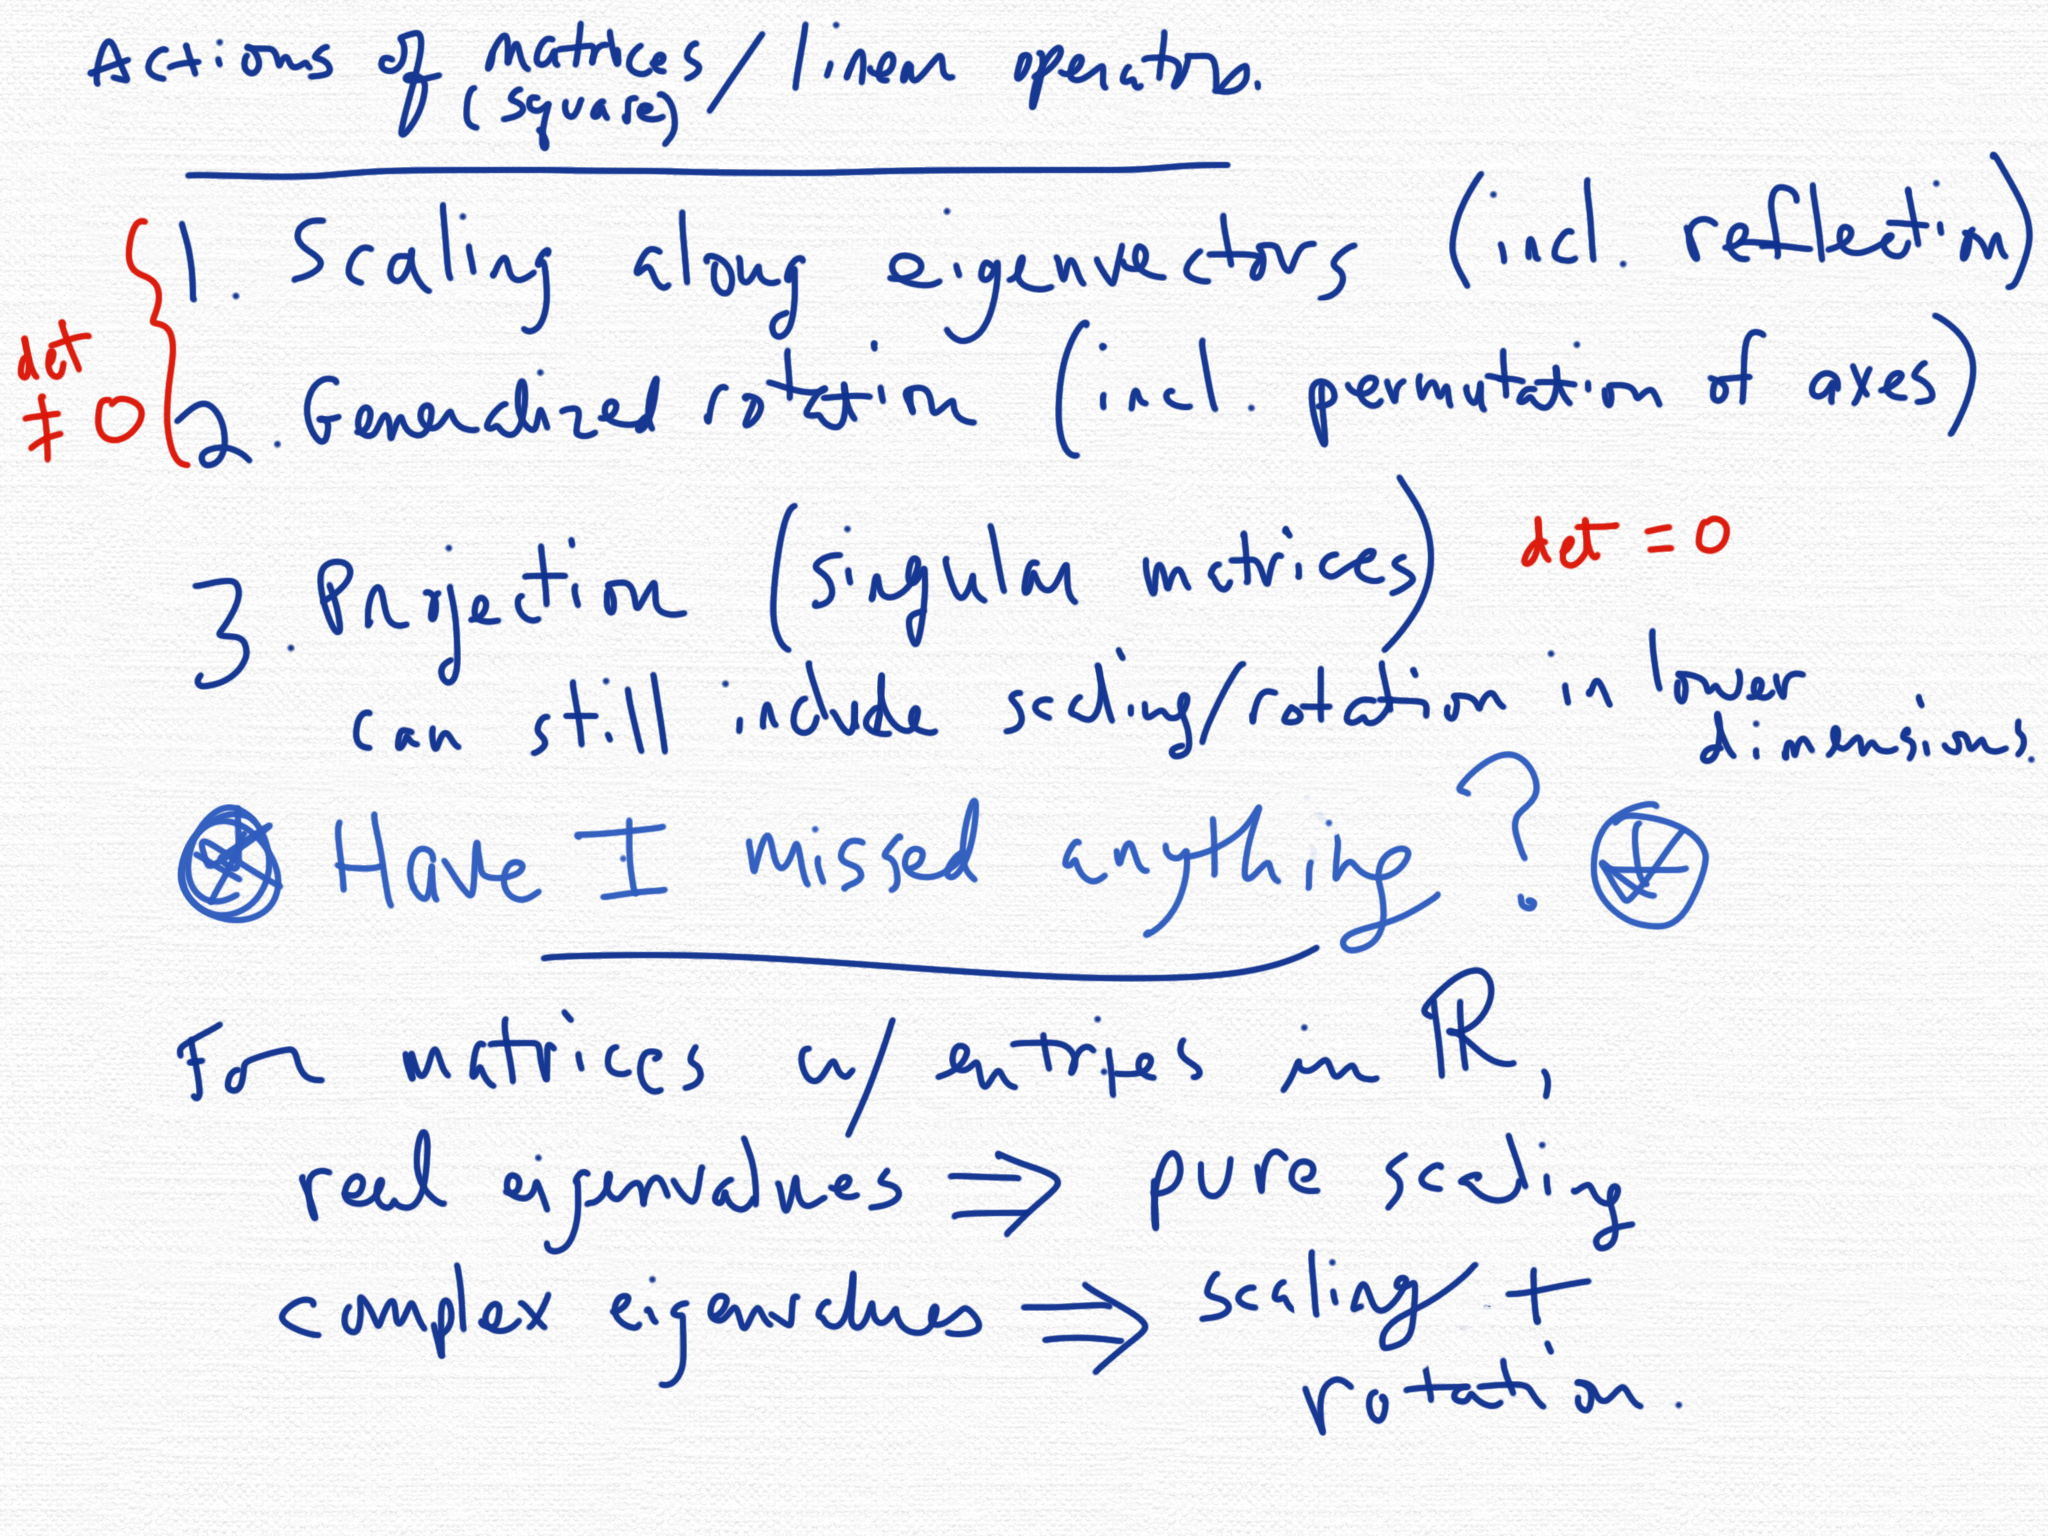 Actions of matrices / linear operators.
(square)
1. Scaling along eigenvectors (incl. reflection)
2. Generalized rotation (incl. permutation of axes)
det
≠ 0
3. Projection (singular matrices) det = 0
can still include scaling/rotation in lower
dimensions.
Have I missed anything?
For matrices w/ entries in ℝ,
real eigenvalues ⇒ pure scaling
complex eigenvalues ⇒ scaling +
rotation.